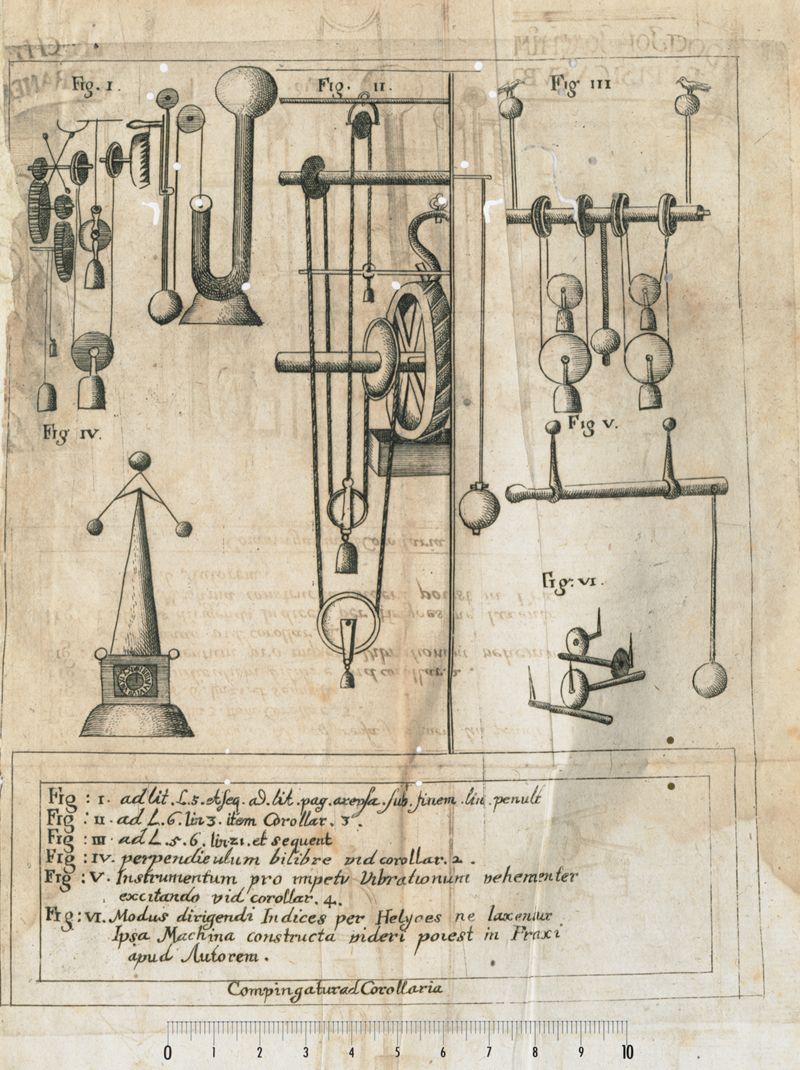 Fig. I.
Fig. II.
Fig III
Fig IV.
Fig V.
Fig: VI.
Fig : I. ad lit. L.5. et seq. ad. lit. pag. sub. finem .lin. penult
Fig : II. ad L. 6. lin 3. item Corollar. 3.
Fig : III. ad L. 5. 6. lin 21. et sequent
Fig : IV. perpendiculum bilibre vid corollar. 2.
Fig : V. Instrumentum pro impetu Vibrationum vehementer
excitando vid corollar. 4.
Fig : VI. Modus dirigendi Indices per Helyces ne laxentur
Ipsa Machina constructa videri potest in Praxi
apud Autorem.
Compingatur ad Corollaria
0 1 2 3 4 5 6 7 8 9 10